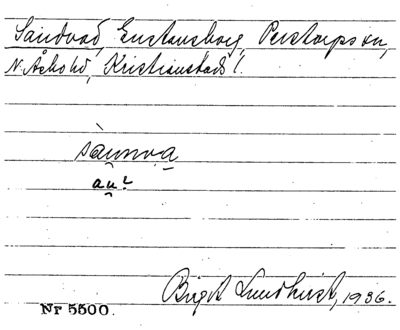 Sandvad, Gustavsborg, Perstorps sn,
N. Åsbo hd, Kristianstads l.
sànno̯a̲
au̯?
Birgit Lundkvist, 1936.
Nr 5500.